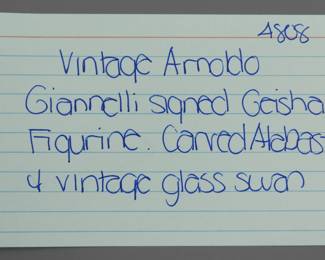 4808
Vintage Arnoldo
Giannelli signed Geisha
Figurine. Carved Alabas
& vintage glass swan